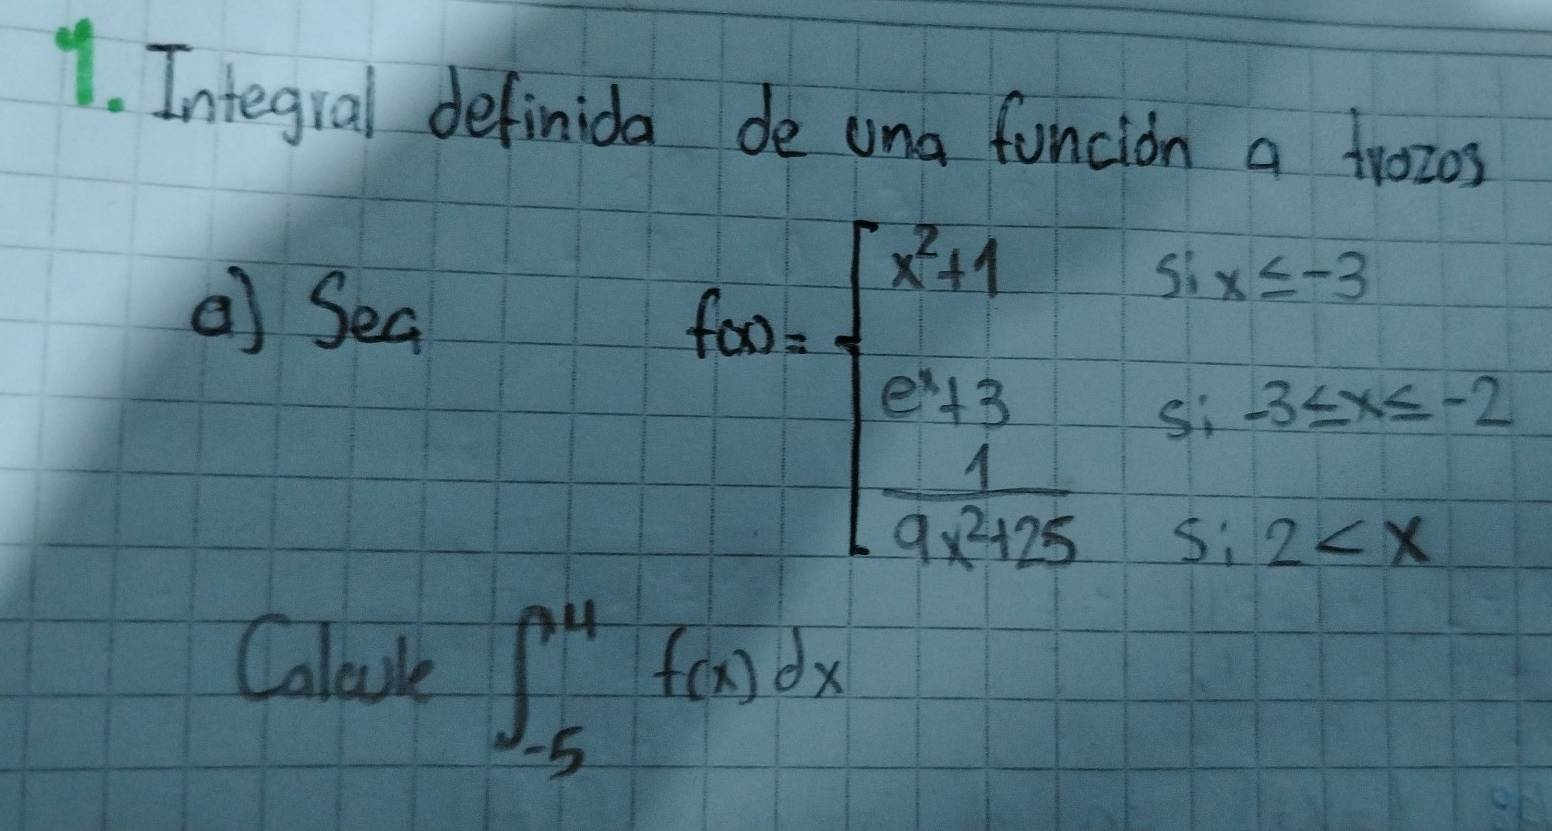 1. Integral definida de una función a trozos
a) Sea f(x) = { x²+1 si x ≤ -3
eˣ+3 si -3 ≤ x ≤ -2
1/(9x²+25) si 2 < x
Calcule ∫₋₅⁴ f(x) dx